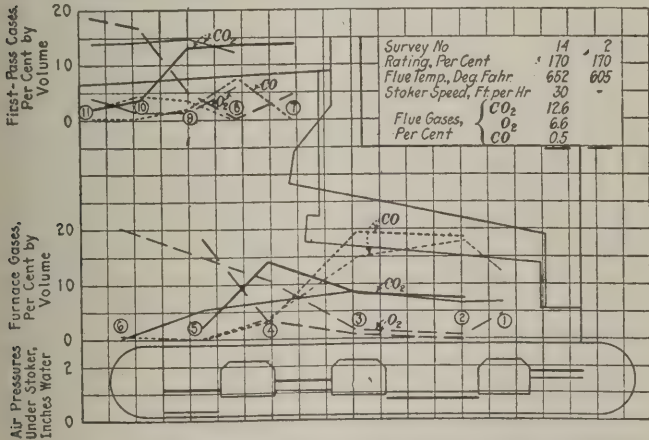 First-Pass Gases,
Per Cent by
Volume
20
10
0
CO₂
CO
O₂
11
10
9
8
7
Survey No 14 2
Rating, Per Cent 170 170
Flue Temp., Deg. Fahr. 652 605
Stoker Speed, Ft. per Hr 30 -
Flue Gases,
Per Cent
CO₂ 12.6
O₂ 6.6
CO 0.5
Furnace Gases,
Per Cent by
Volume
20
10
0
CO
CO₂
O₂
6
5
4
3
2
1
Air Pressures
Under Stoker,
Inches Water
2
0